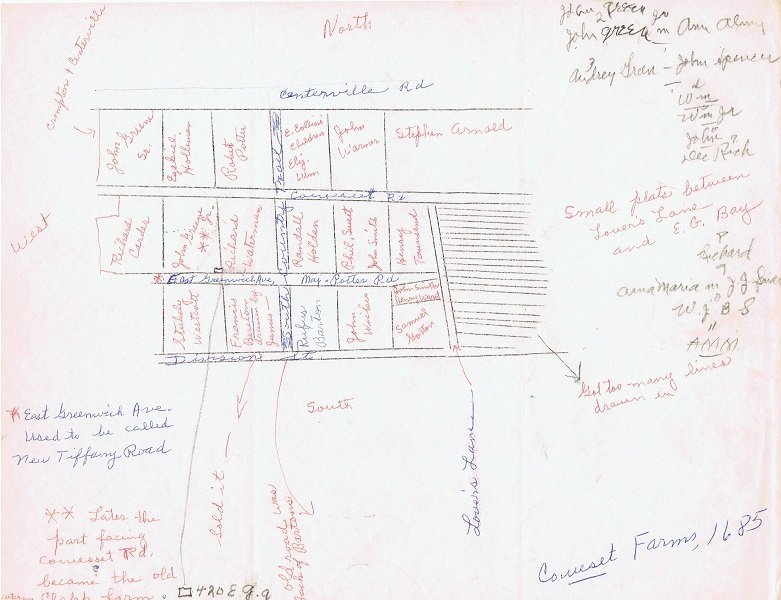 North
Crompton + Centerville
Centerville Rd
John Greene Sr.
Ezekiel Holliman
Robert Potter
E. Collins' Children Eliz. Wm
John Warner
Stephen Arnold
Coweset Rd
West
Richard Carder
John Greene
** Jr.
Richard Waterman
South County Trail
Randall Holden
Phil. Sweet
John Smith
Henry Townsend
* East Greenwich Ave, Maj. Potter Rd
Stukely Westcott
Francis
James
Rufus Barton
John Wickes
John Smith
Henry Ward
Samuel Gorton
Division St.
South
Sold it
old road was
back of Bartons
Lover's Lane
* East Greenwich Ave.
Used to be called
New Tiffany Road
** Later the
part facing
Cowesset Rd.
became the old
Clapp farm.
420 E. G. a
John Green Jr
2
John Green m Ann Almy
3
John Spencer
Wm
Wm Jr
John
Rich
Small plats between
Lovers Lane
and E. G. Bay
Richard
Anna Maria m J J
W. J. B S
"
AMM
Got too many lines
drawn in
Coweset Farms, 1685